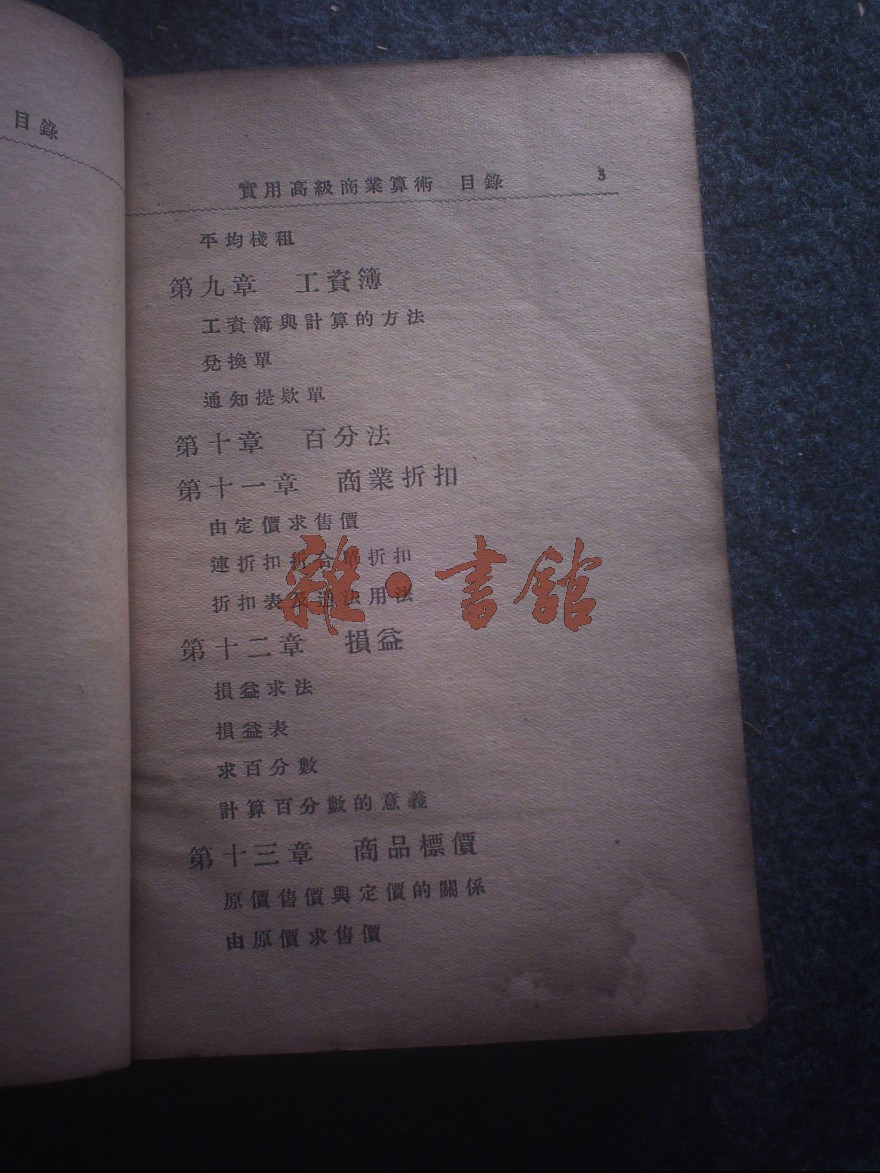 目錄
實用高級商業算術 目錄 3
平均棧租
第九章 工資簿
工資簿與計算的方法
兌換單
通知提欵單
第十章 百分法
第十一章 商業折扣
由定價求售價
連折扣折合單折扣
折扣表及用法
第十二章 損益
損益求法
損益表
求百分數
計算百分數的意義
第十三章 商品標價
原價售價與定價的關係
由原價求售價
雜·書館